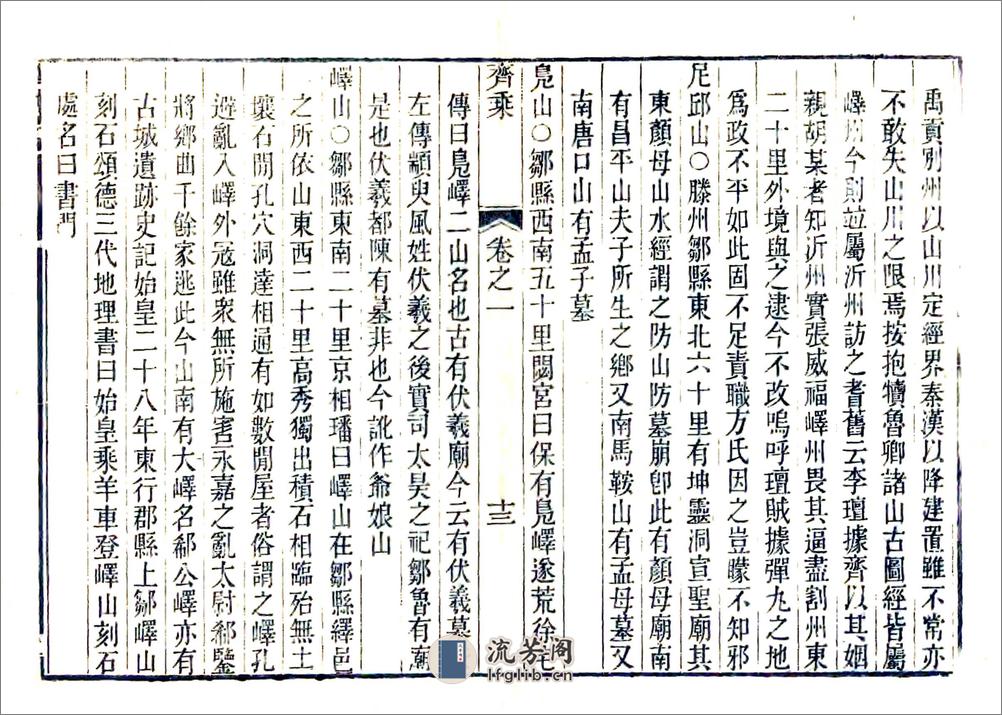 禹貢別州以山川定經界秦漢以降建置雖不常亦
不敢失山川之限焉按抱犢魯卿諸山古圖經皆屬
嶧州今則並屬沂州訪之耆舊云李璮據齊以其姻
親胡某者知沂州實張威福嶧州畏其逼盡割州東
二十里外境與之逮今不改嗚呼璮賊據彈丸之地
爲政不平如此固不足責職方氏因之豈矇不知邪
尼邱山〇滕州鄒縣東北六十里有坤靈洞宣聖廟其
東顏母山水經謂之防山防墓崩卽此有顏母廟南
有昌平山夫子所生之鄉又南馬鞍山有孟母墓又
南唐口山有孟子墓
鳧山〇鄒縣西南五十里閟宮曰保有鳧嶧遂荒徐宅
齊乘
卷之一
十三
傳曰鳧嶧二山名也古有伏羲廟今云有伏羲墓
左傳顓臾風姓伏羲之後實司太昊之祀鄒魯有廟
是也伏羲都陳有墓非也今訛作爺娘山
嶧山〇鄒縣東南二十里京相璠曰嶧山在鄒縣繹邑
之所依山東西二十里高秀獨出積石相臨殆無土
壤石間孔穴洞達相通有如數間屋者俗謂之嶧孔
避亂入嶧外寇雖衆無所施害永嘉之亂太尉郗鑒
將鄉曲千餘家逃此今山南有大嶧名郗公嶧亦有
古城遺跡史記始皇二十八年東行郡縣上鄒嶧山
刻石頌德三代地理書曰始皇乘羊車登嶧山刻石
處名曰書門
流芳阁
lfglib.cn